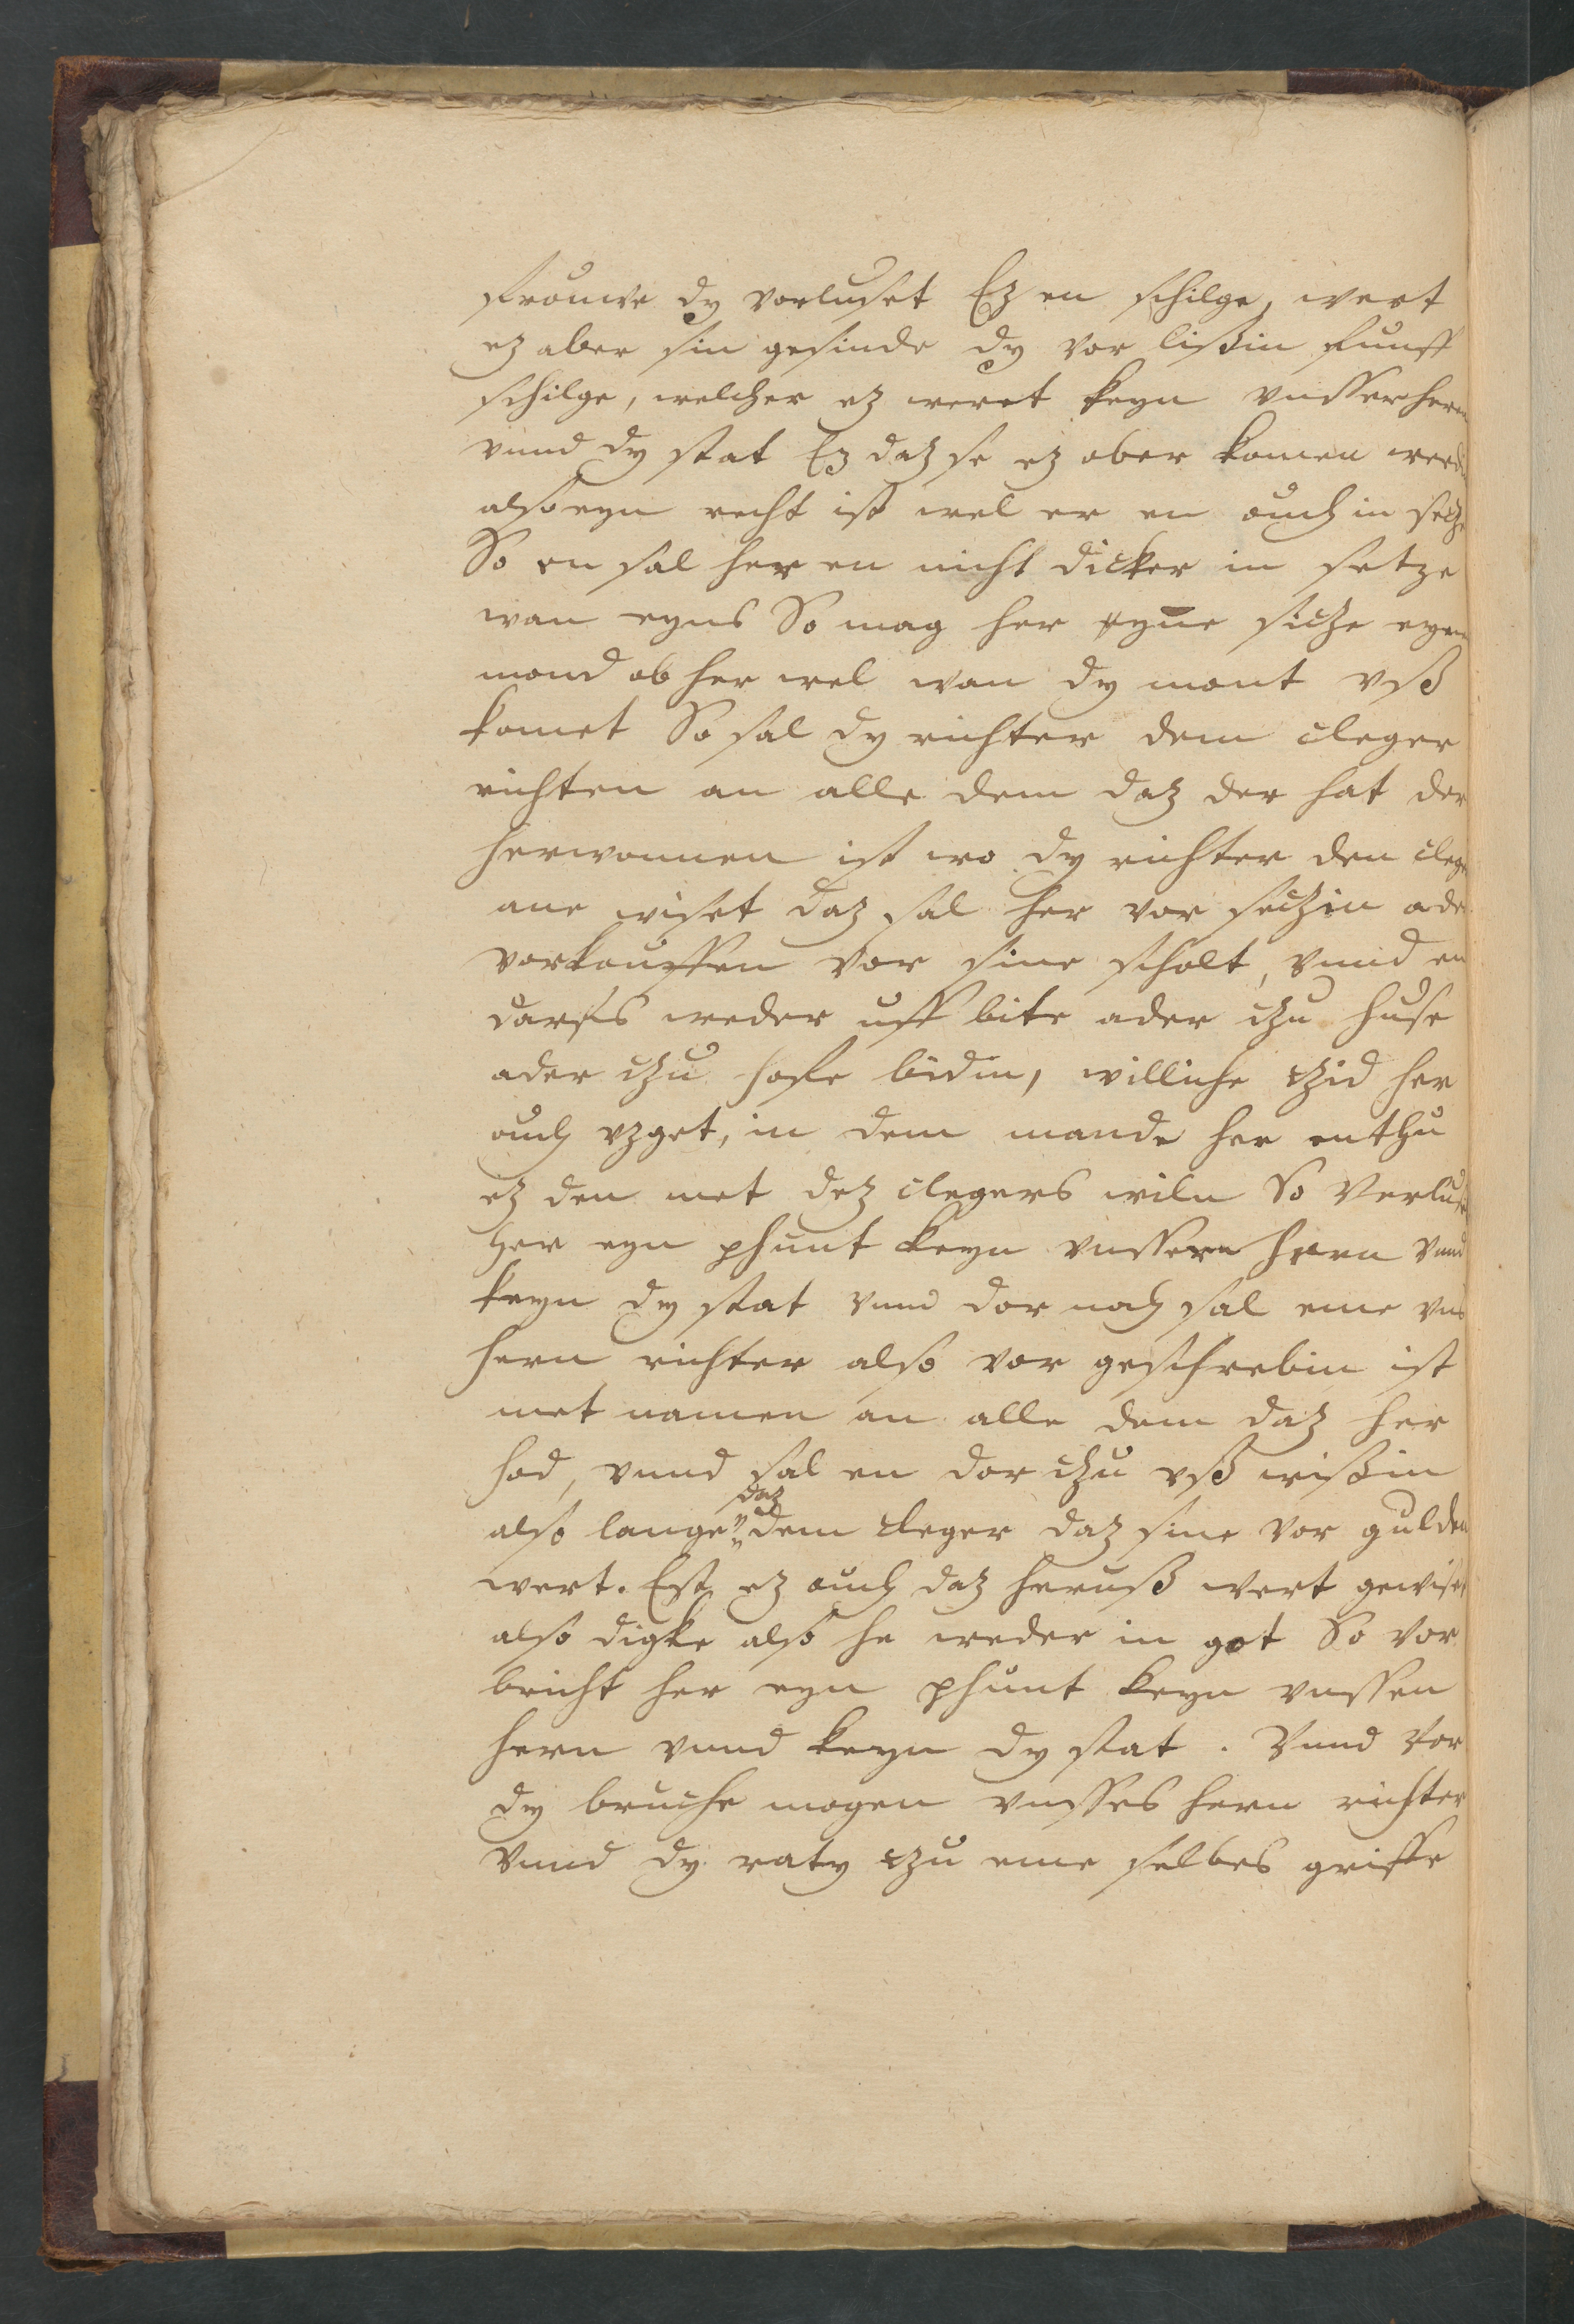 frouwe dy vorluset Ez en schilge, wert
ez aber sin gesinde dy vor lißin funff
schilge, welcher ez weret keyn vnsser hern
vnnd dy stat Ez daz se ez ober komen werdin
also eyn recht ist wel er en ouch in secze
So en sal her en nicht dicker in setze
wan eyns So mag her eyne sicze eyn
mond ob her wel wan dy mont vß
komet So sal dy richter dem cleger
richten an alle dem daz der hat der
herwonnen ist wo dy richter den clege
ane wiset daz sal her vor seczin ader
vorkouffen vor sine scholt, vnnd en
darfs weder uff bite ader czu huse
ader czu hofe bidin, williche czid her
ouch vzget, in dem mande her enthu
ez den met dez clegers wiln So verluset
her eyn phunt keyn vnssern hern vnnd
keyn dy stat vnnd dor noch sal eme vns
hern richter also vor geschrebin ist
met namen an alle dem daz her
had, vnnd sal en dor czu vß wißin
also lange daz dem cleger daz sine vor gulden
wert. Est ez ouch daz heruß wert gewiset
also digke also he weder in got So vor
bricht her eyn phunt keyn vnssen
hern vnnd keyn dy stat. Vnnd vor
dy bruche mogen vnsses hern richter
vnnd dy raty czu eme selbes griffe